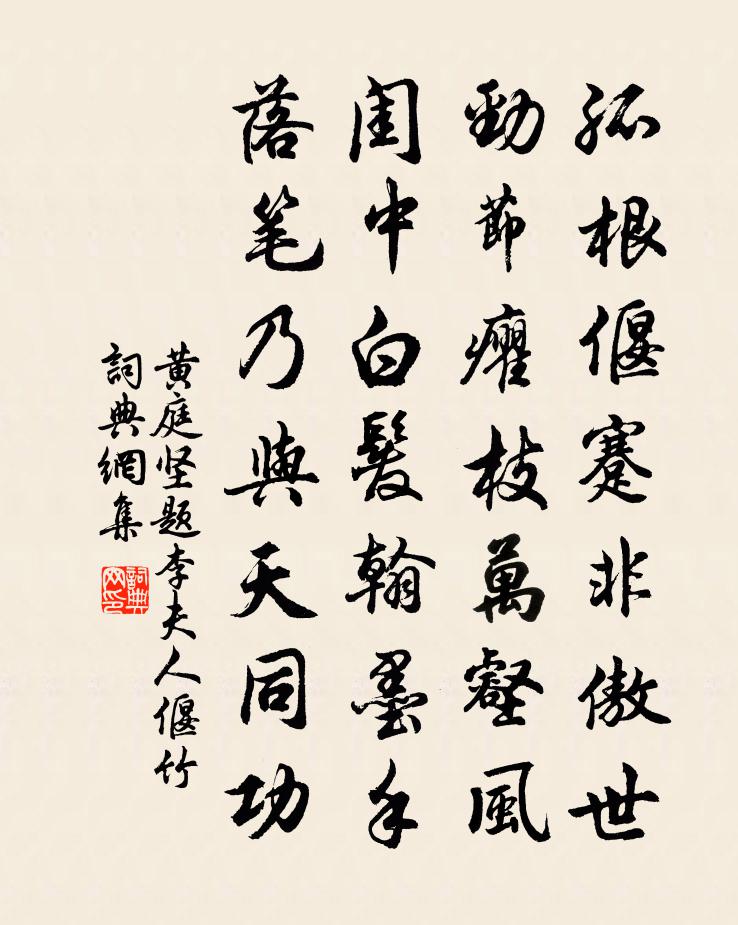 孤根偃蹇非傲世
勁節癯枝萬壑風
閨中白髮翰墨手
落笔乃與天同功
黄庭坚题李夫人偃竹
詞典網集
詞典网印